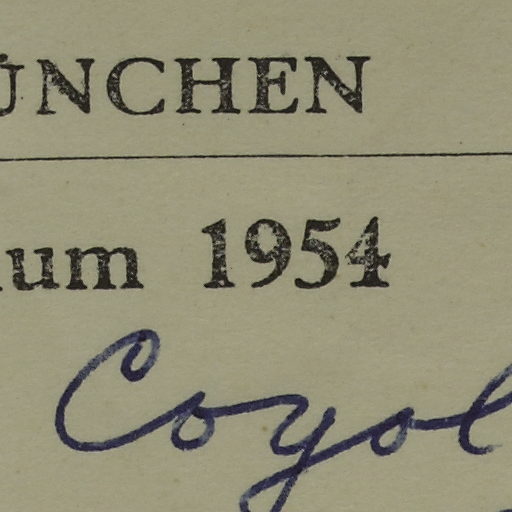 ÜNCHEN
um 1954
Coyol